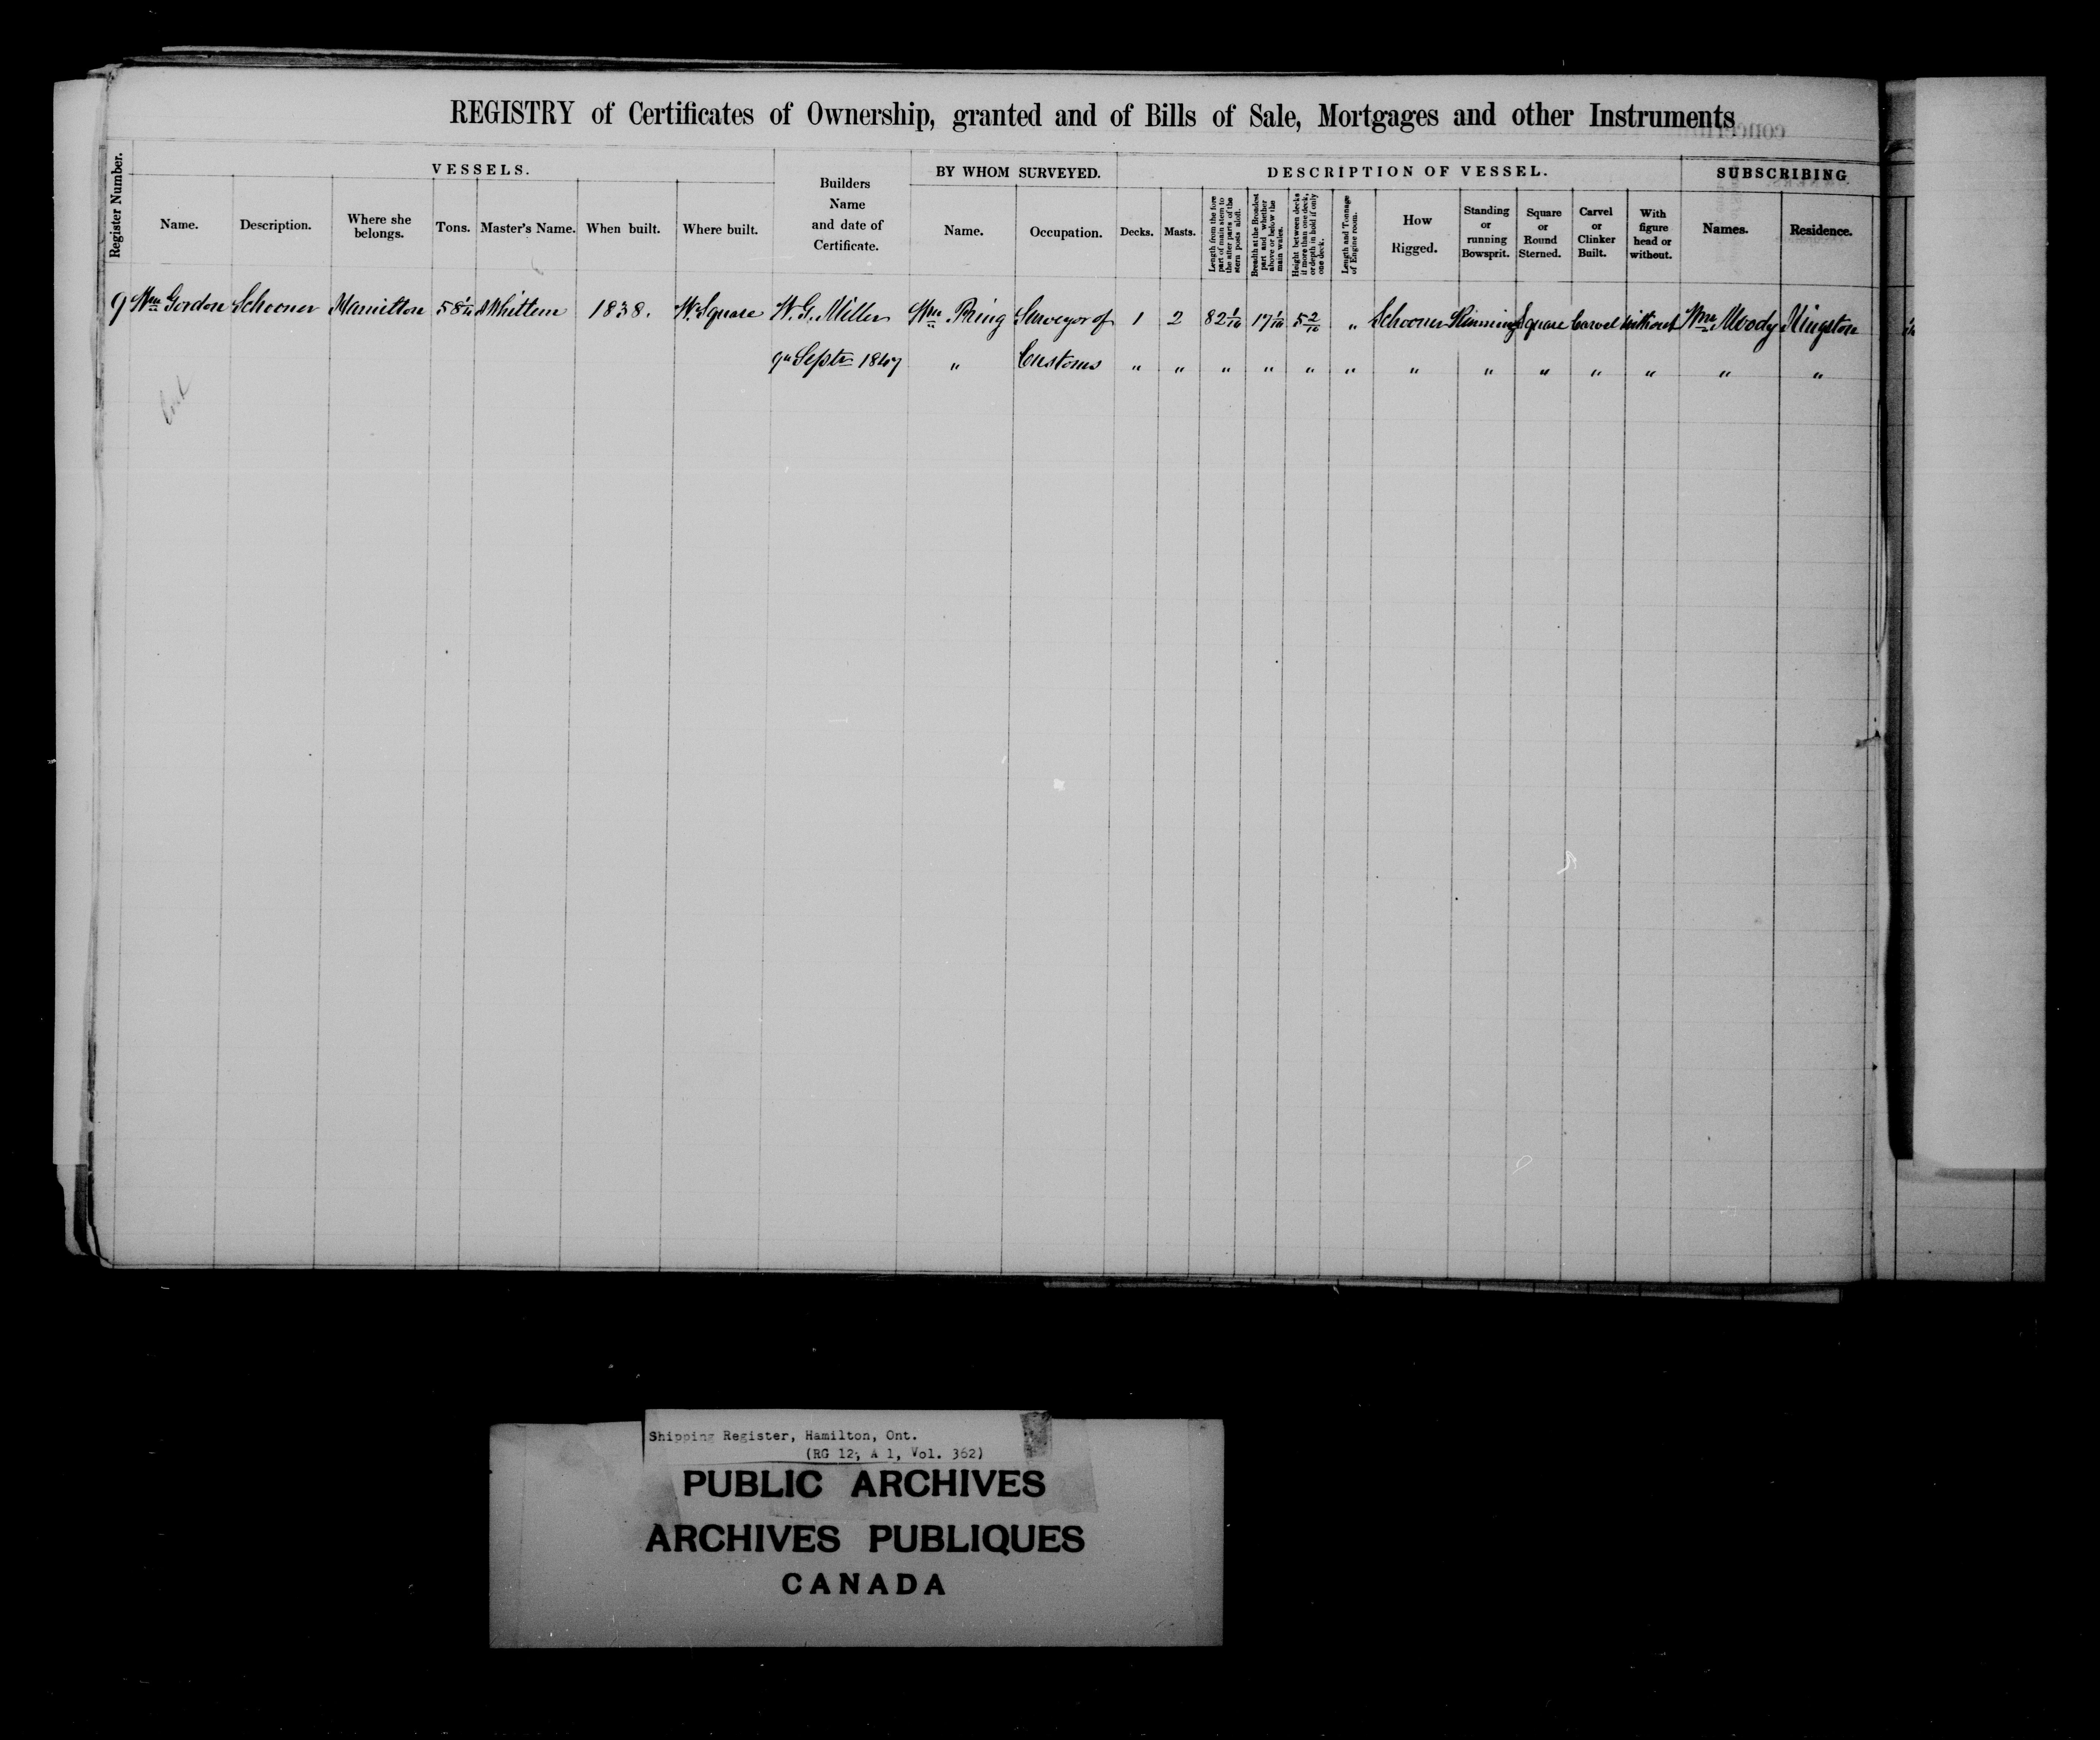 REGISTRY of Certificates of Ownership, granted and of Bills of Sale, Mortgages and other Instruments
Register Number.
VESSELS.
Name.
Description.
Where she belongs.
Tons.
Master's Name.
When built.
Where built.
Builders Name and date of Certificate.
BY WHOM SURVEYED.
Name.
Occupation.
DESCRIPTION OF VESSEL.
Decks.
Masts.
Length from the fore part of main stem to the after parts of the stern posts aloft.
Breadth at the Broadest part and whether above or below the main wales.
Height between decks if more than one deck, or depth in hold if only one deck.
Length and Tonnage of Engine room.
How Rigged.
Standing or running Bowsprit.
Square or Round Sterned.
Carvel or Clinker Built.
With figure head or without.
SUBSCRIBING
Names.
Residence.
9 Wm Gordon Schooner Hamilton 58 Whitten 1838. W. Square W. G. Miller Wm Pring Surveyor of 1 2 82 1/10 17 1/10 5 2/10 " Schooner Running Square Carvel without Wm Moody Kingston
9th Septr 1847 " Customs " " " " " " " " " " " " "
Shipping Register, Hamilton, Ont.
(RG 12, A 1, Vol. 362)
PUBLIC ARCHIVES
ARCHIVES PUBLIQUES
CANADA